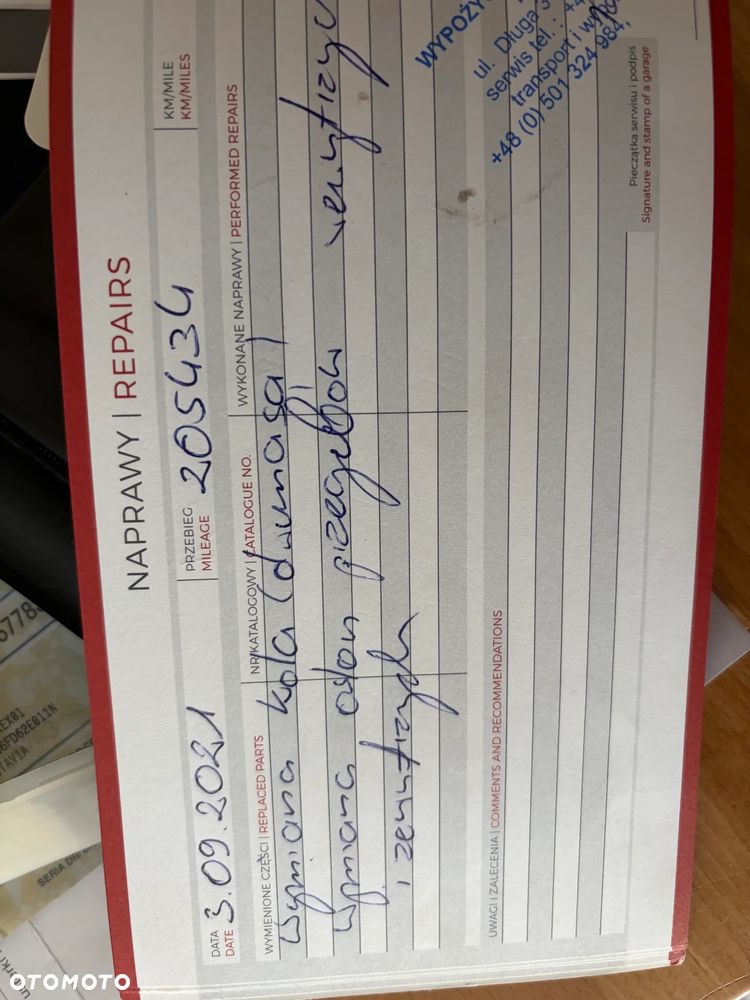 NAPRAWY | REPAIRS
DATA
DATE
3.09.2021
PRZEBIEG
MILEAGE
205434
KM/MILE
KM/MILES
WYMIENIONE CZĘŚCI | REPLACED PARTS
NR KATALOGOWY | CATALOGUE NO.
WYKONANE NAPRAWY | PERFORMED REPAIRS
Wymiana koła (dwumasa)
Wymiana osłon przegubów
i zewntrzych
UWAGI I ZALECENIA | COMMENTS AND RECOMMENDATIONS
WYPOŻY
ul. Długa
serwis tel.: +4
transport i
+48 (0) 501 324 984,
Pieczątka serwisu i podpis
Signature and stamp of a garage
6FD62E011N
TAVIA
OTOMOTO